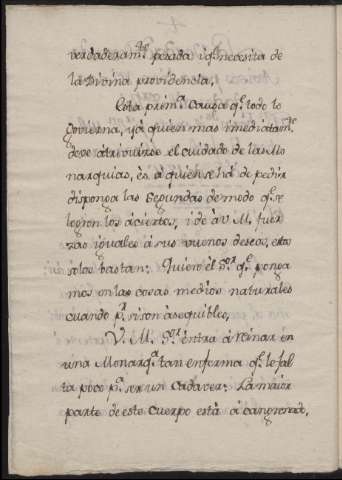 verdaderam.te pesada i q.e necesita de
la Divina providencia,
Esta prim.a Causa q.e todo lo
govierna, ya quien mas imediatam.te
deve atribuirse el cuidado de las Mo
narquias, es a quien se há de pedir
disponga las segundas de modo q.e se
logren los aciertos, i dé à V. M. fuer
zas iguales á sus buenos deseos, estos
solos bastan: Quiere el S.or q.e ponga
mos en las cosas medios naturales
cuando p.r si son asequibles,
V. M. S.or entra á Reinar en
una Monarq.a tan enferma q.e le fal
ta poco p.a ser un Cadaver: La maior
parte de este cuerpo está á cangrenad,